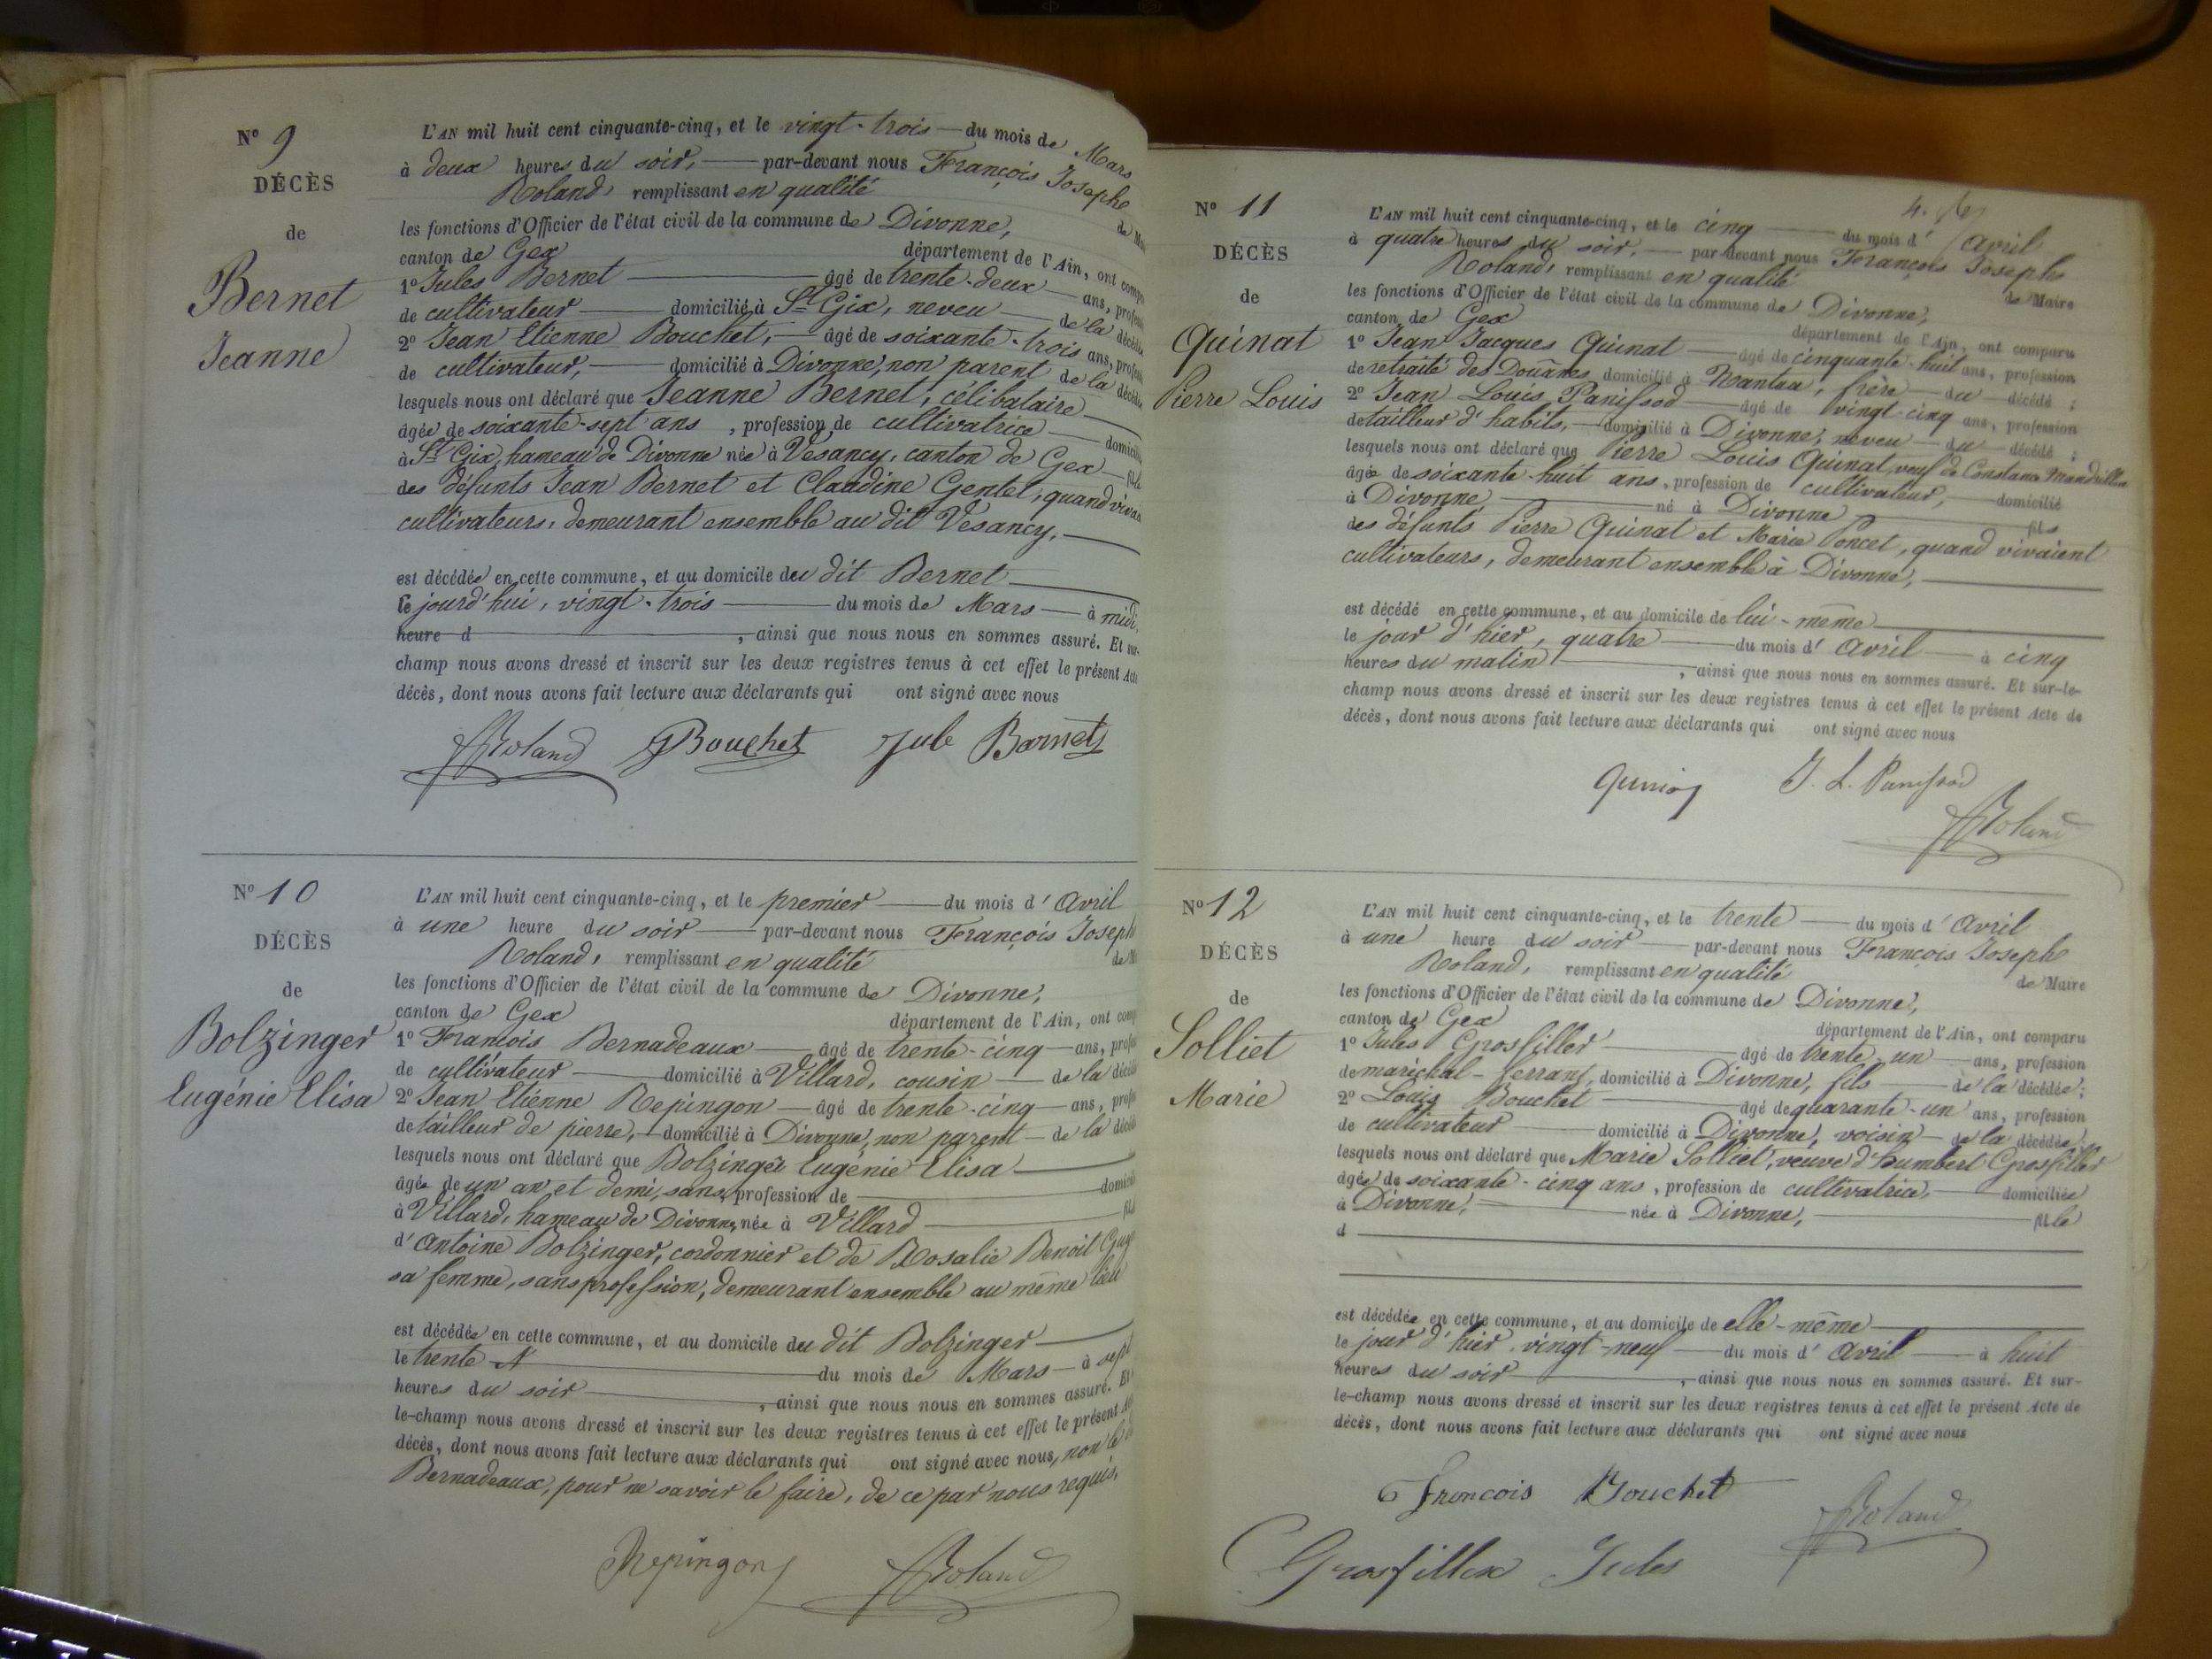 N° 9
DÉCÈS
de
Bernet
Jeanne
L'AN mil huit cent cinquante-cinq, et le vingt-trois du mois de Mars
à deux heures du soir, par-devant nous François Josephe
Roland, remplissant en qualité de
les fonctions d'Officier de l'état civil de la commune de Divonne,
canton de Gex département de l'Ain, ont
1° Jules Bernet âgé de trente-deux ans,
de cultivateur domicilié à St Gix, neveu de la
2° Jean Etienne Bouchet, âgé de soixante-trois ans,
de cultivateur, domicilié à Divonne, non parent de la
lesquels nous ont déclaré que Jeanne Bernet, célibataire
âgée de soixante-sept ans, profession de cultivatrice
à St Gix, hameau de Divonne née à Vesancy, canton de Gex
des défunts Jean Bernet et Claudine Gentet, quand
cultivateurs, demeurant ensemble au dit Vesancy.
est décédée en cette commune, et au domicile du dit Bernet
le jourd'hui, vingt-trois du mois de Mars à midi,
heure d , ainsi que nous nous en sommes assuré. Et sur-
champ nous avons dressé et inscrit sur les deux registres tenus à cet effet le présent Acte
décès, dont nous avons fait lecture aux déclarants qui ont signé avec nous
Roland Bouchet Jule Barnet
N° 10
DÉCÈS
de
Bolzinger
Eugénie Elisa
L'AN mil huit cent cinquante-cinq, et le premier du mois d'Avril
à une heure du soir par-devant nous François Joseph
Roland, remplissant en qualité de
les fonctions d'Officier de l'état civil de la commune de Divonne,
canton de Gex département de l'Ain, ont
1° Francois Bernadeaux âgé de trente-cinq ans,
de cultivateur domicilié à Villard, cousin de la
2° Jean Etienne Repingon âgé de trente-cinq ans,
de tailleur de pierre, domicilié à Divonne, non parent de la
lesquels nous ont déclaré que Bolzinger Eugénie Elisa
âgée de un an et demi, sans profession de
à Villard, hameau de Divonne, née à Villard
d'Antoine Bolzinger, cordonnier et de Rosalie Benoit
sa femme, sans profession, demeurant ensemble au même lieu
est décédée en cette commune, et au domicile du dit Bolzinger
le trente du mois de Mars à sept
heures du soir , ainsi que nous nous en sommes assuré. Et
le-champ nous avons dressé et inscrit sur les deux registres tenus à cet effet le présent
décès, dont nous avons fait lecture aux déclarants qui ont signé avec nous, non le
Bernadeaux, pour ne savoir le faire, de ce par nous requis.
Repingon Roland
N° 11
DÉCÈS
de
Quinat
Pierre Louis
L'AN mil huit cent cinquante-cinq, et le cinq du mois d'Avril
à quatre heures du soir, par-devant nous François Josephe
Roland, remplissant en qualité de Maire
les fonctions d'Officier de l'état civil de la commune de Divonne,
canton de Gex département de l'Ain, ont comparu
1° Jean Jacques Quinat âgé de cinquante-huit ans, profession
de retraité des Douânes domicilié à Nantua, frère du décédé ;
2° Jean Louis Panissod âgé de vingt-cinq ans, profession
de tailleur d'habits, domicilié à Divonne, neveu du décédé ;
lesquels nous ont déclaré que Pierre Louis Quinat, veuf de Constance Mandrillon
âgé de soixante-huit ans, profession de cultivateur, domicilié
à Divonne né à Divonne fils
des défunts Pierre Quinat et Marie Poncet, quand vivaient
cultivateurs, demeurant ensemble à Divonne,
est décédé en cette commune, et au domicile de lui-même
le jour d'hier, quatre du mois d'Avril à cinq
heures du matin , ainsi que nous nous en sommes assuré. Et sur-le-
champ nous avons dressé et inscrit sur les deux registres tenus à cet effet le présent Acte de
décès, dont nous avons fait lecture aux déclarants qui ont signé avec nous
J. L. Panissod
Roland
N° 12
DÉCÈS
de
Solliet
Marie
L'AN mil huit cent cinquante-cinq, et le trente du mois d'Avril
à une heure du soir par-devant nous François Josephe
Roland, remplissant en qualité de Maire
les fonctions d'Officier de l'état civil de la commune de Divonne,
canton de Gex département de l'Ain, ont comparu
1° Jules Grosfiller âgé de trente-un ans, profession
de maréchal-ferrant, domicilié à Divonne, fils de la décédée ;
2° Louis Bouchet âgé de quarante-un ans, profession
de cultivateur domicilié à Divonne, voisin de la décédée ;
lesquels nous ont déclaré que Marie Solliet, veuve d'humbert Grosfiller
âgée de soixante-cinq ans, profession de cultivatrice, domiciliée
à Divonne, née à Divonne, fille
d
est décédée en cette commune, et au domicile de elle-même
le jour d'hier, vingt-neuf du mois d'Avril à huit
heures du soir , ainsi que nous nous en sommes assuré. Et sur-
le-champ nous avons dressé et inscrit sur les deux registres tenus à cet effet le présent Acte de
décès, dont nous avons fait lecture aux déclarants qui ont signé avec nous
Francois Bouchet Roland
Grosfillex Jules